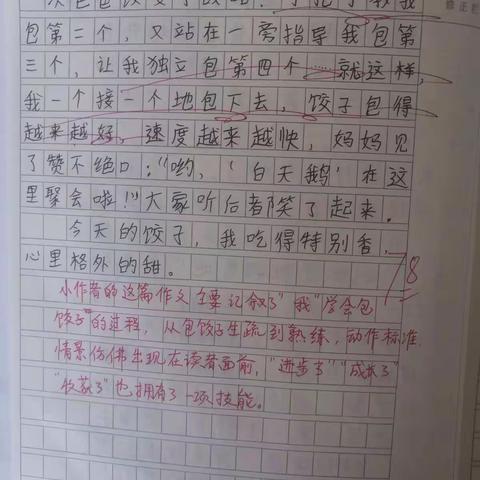 包第三个，又站在一旁指导我包第
三个，让我独立包第四个……就这样，
我一个接一个地包下去，饺子包得
越来越好，速度越来越快，妈妈见
了赞不绝口："哟，'白天鹅'在这
里聚会啦！"大家听后都笑了起来。
今天的饺子，我吃得特别香，
心里格外的甜。
78
小作者的这篇作文主要记叙了"我"学会包
饺子"的过程，从包饺子生疏到熟练，动作标准，
情景仿佛出现在读者面前，"进步了""成长了"
"收获了"也拥有了一项技能。